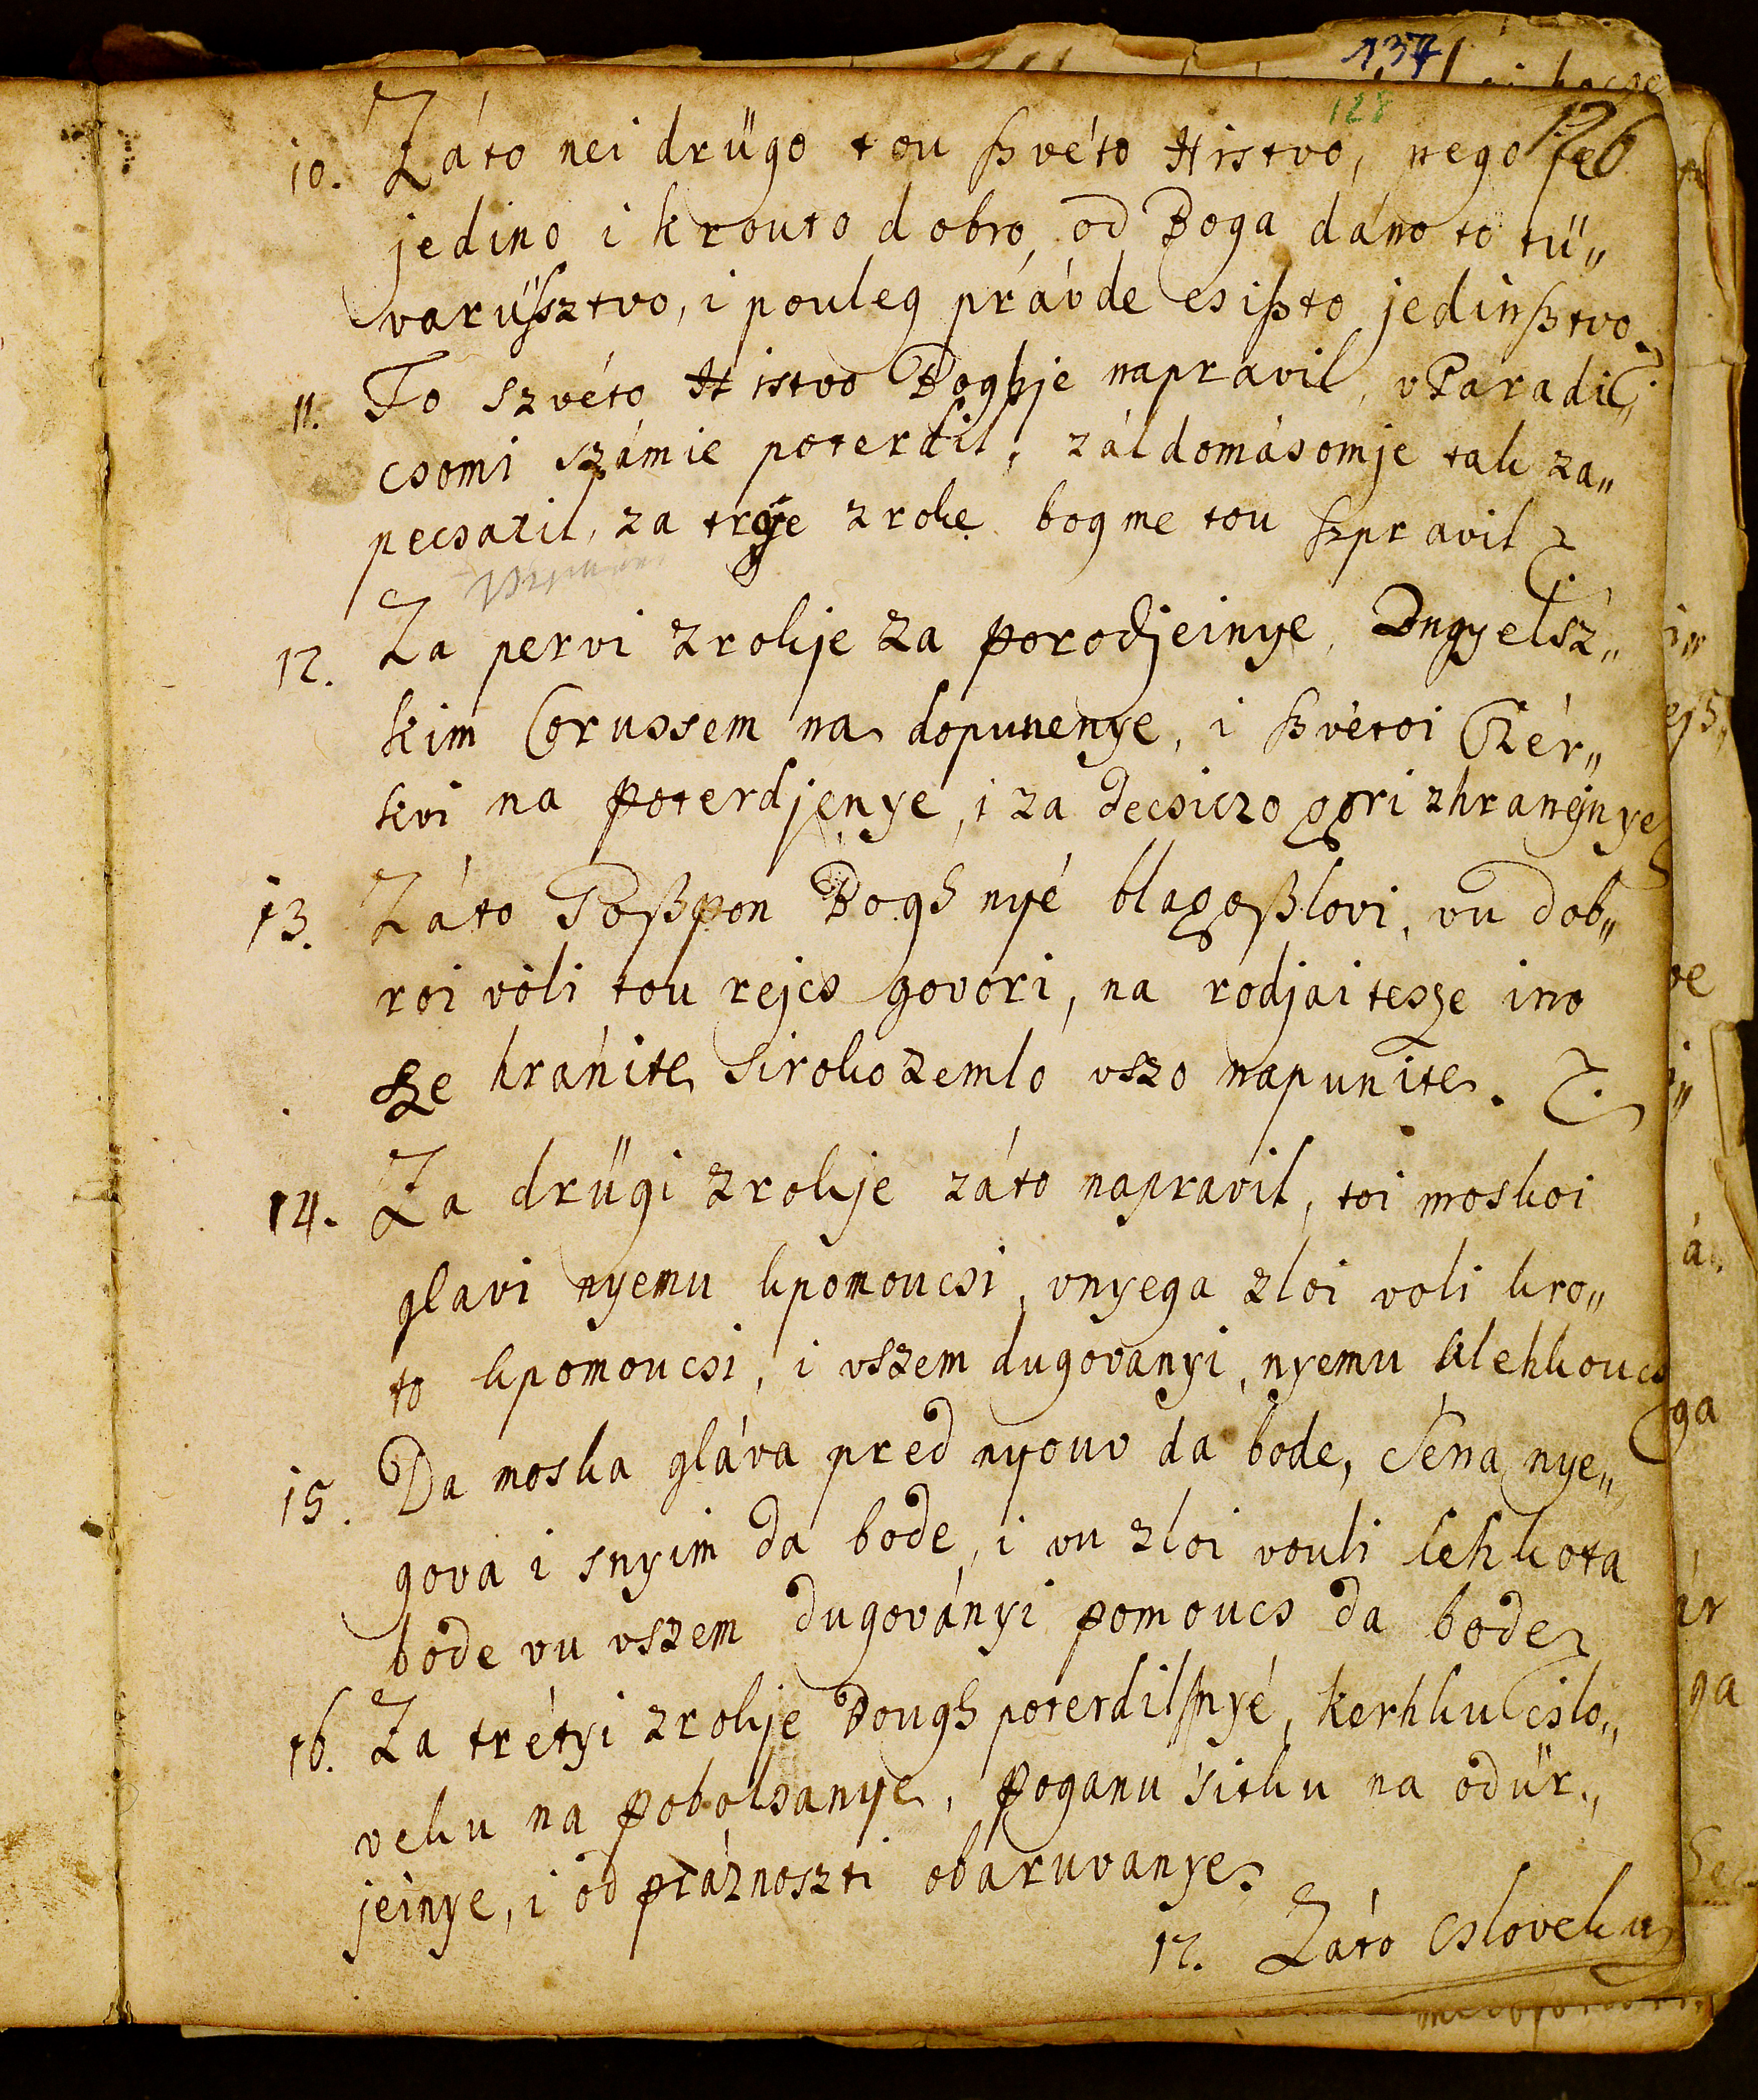 137
128
126
10. Záto nei drügo tou ſzvéto Histvo, nego ſe
jedino i krouto dobro, od Boga dáno to tü„
varüſsztvo, i pouleg právde es iſzto jedinſztvo.
11. To szvéto Histvo Bogh je napravil, v Paradi„
csomi számie poterdil, záldomásomje tak za„
pecsatil, za trÿe zroke bog me tou ſzpravil
12. Za pervi zrokje za porodjeinye, Angyelsz„
kim Corussem na dopunenye, i ſzvétoi Czér„
kvi na poterdjenye, i za decsiczo gori zhranejnye
13. Záto Goſzpon Bogh nyé blagoſzlovi, vu dob„
roi vòli tou rejcs govori, na rodjaitesze ino
sze hránite siroko zemlo vszo napunite.
14. Za drügi zrokje záto napravil, toi moskoi
glavi nyemu kpomoucsi, vnyega zloi voli kro„
to kpomoucsi, i vszem dugovanyi, nyemu klehkoucs
15. Da moska gláva pred nyouv da bode, Sena nye„
gova i snyim da bode, i vu zloi vouli lehkota
bode vu vszem dugoványi pomoucs da bode
16. Za trétyi zrokje Bough poterdil ſnyé, kerhku cslo„
veku na pobolsanye, poganu sitku na odür„
jeinye, i od práznoszti obaruvanye
17. Záto Csloveku